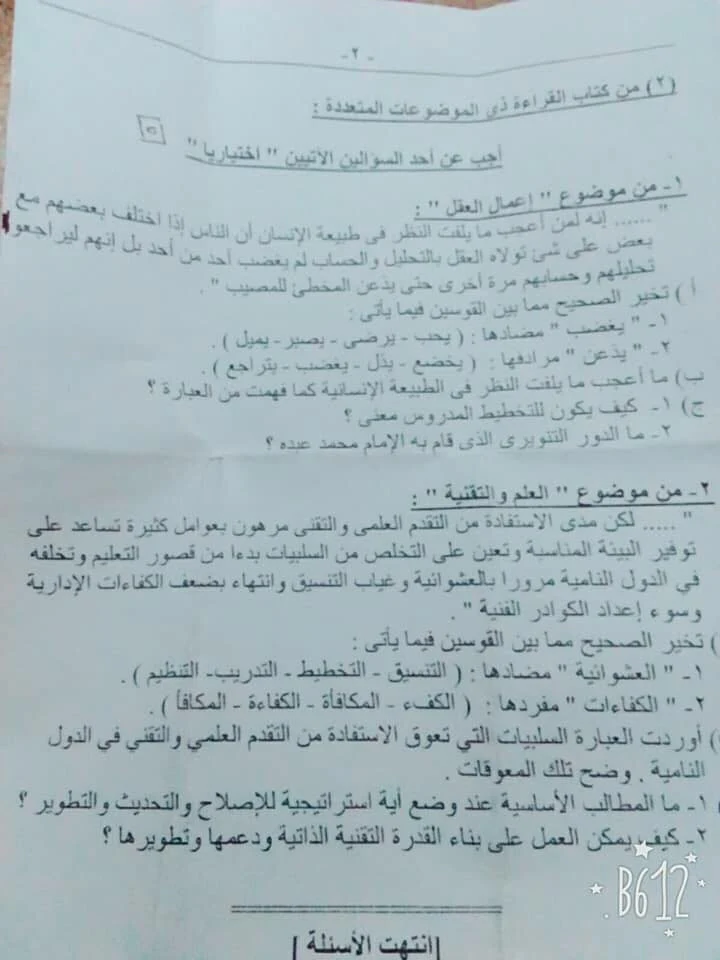 - ٢ -
(٢) من كتاب القراءة ذى الموضوعات المتعددة :
أجب عن أحد السؤالين الآتيين " اختياريا "
١- من موضوع " إعمال العقل " :
" ...... إنه لمن أعجب ما يلفت النظر فى طبيعة الإنسان أن الناس إذا اختلف بعضهم مع
بعض على شئ تولاه العقل بالتحليل والحساب لم يغضب أحد من أحد بل إنهم ليراجعو
تحليلهم وحسابهم مرة أخرى حتى يذعن المخطئ للمصيب " .
أ ) تخير الصحيح مما بين القوسين فيما يأتى :
١- " يغضب " مضادها : ( يحب - يرضى - يصبر - يميل ) .
٢- " يذعن " مرادفها : ( يخضع - يذل - يغضب - يتراجع ) .
ب) ما أعجب ما يلفت النظر فى الطبيعة الإنسانية كما فهمت من العبارة ؟
ج) ١- كيف يكون للتخطيط المدروس معنى ؟
٢- ما الدور التنويرى الذى قام به الإمام محمد عبده ؟
٢- من موضوع " العلم والتقنية " :
" ..... لكن مدى الاستفادة من التقدم العلمى والتقنى مرهون بعوامل كثيرة تساعد على
توفير البيئة المناسبة وتعين على التخلص من السلبيات بدءا من قصور التعليم وتخلفه
في الدول النامية مرورا بالعشوائية وغياب التنسيق وانتهاء بضعف الكفاءات الإدارية
وسوء إعداد الكوادر الفنية " .
) تخير الصحيح مما بين القوسين فيما يأتى :
١- " العشوائية " مضادها : ( التنسيق - التخطيط - التدريب- التنظيم ) .
٢- " الكفاءات " مفردها : ( الكفء - المكافأة - الكفاءة - المكافأ ) .
) أوردت العبارة السلبيات التي تعوق الاستفادة من التقدم العلمي والتقني في الدول
النامية . وضح تلك المعوقات .
١- ما المطالب الأساسية عند وضع أية استراتيجية للإصلاح والتحديث والتطوير ؟
٢- كيف يمكن العمل على بناء القدرة التقنية الذاتية ودعمها وتطويرها ؟
B612
[انتهت الأسئلة]